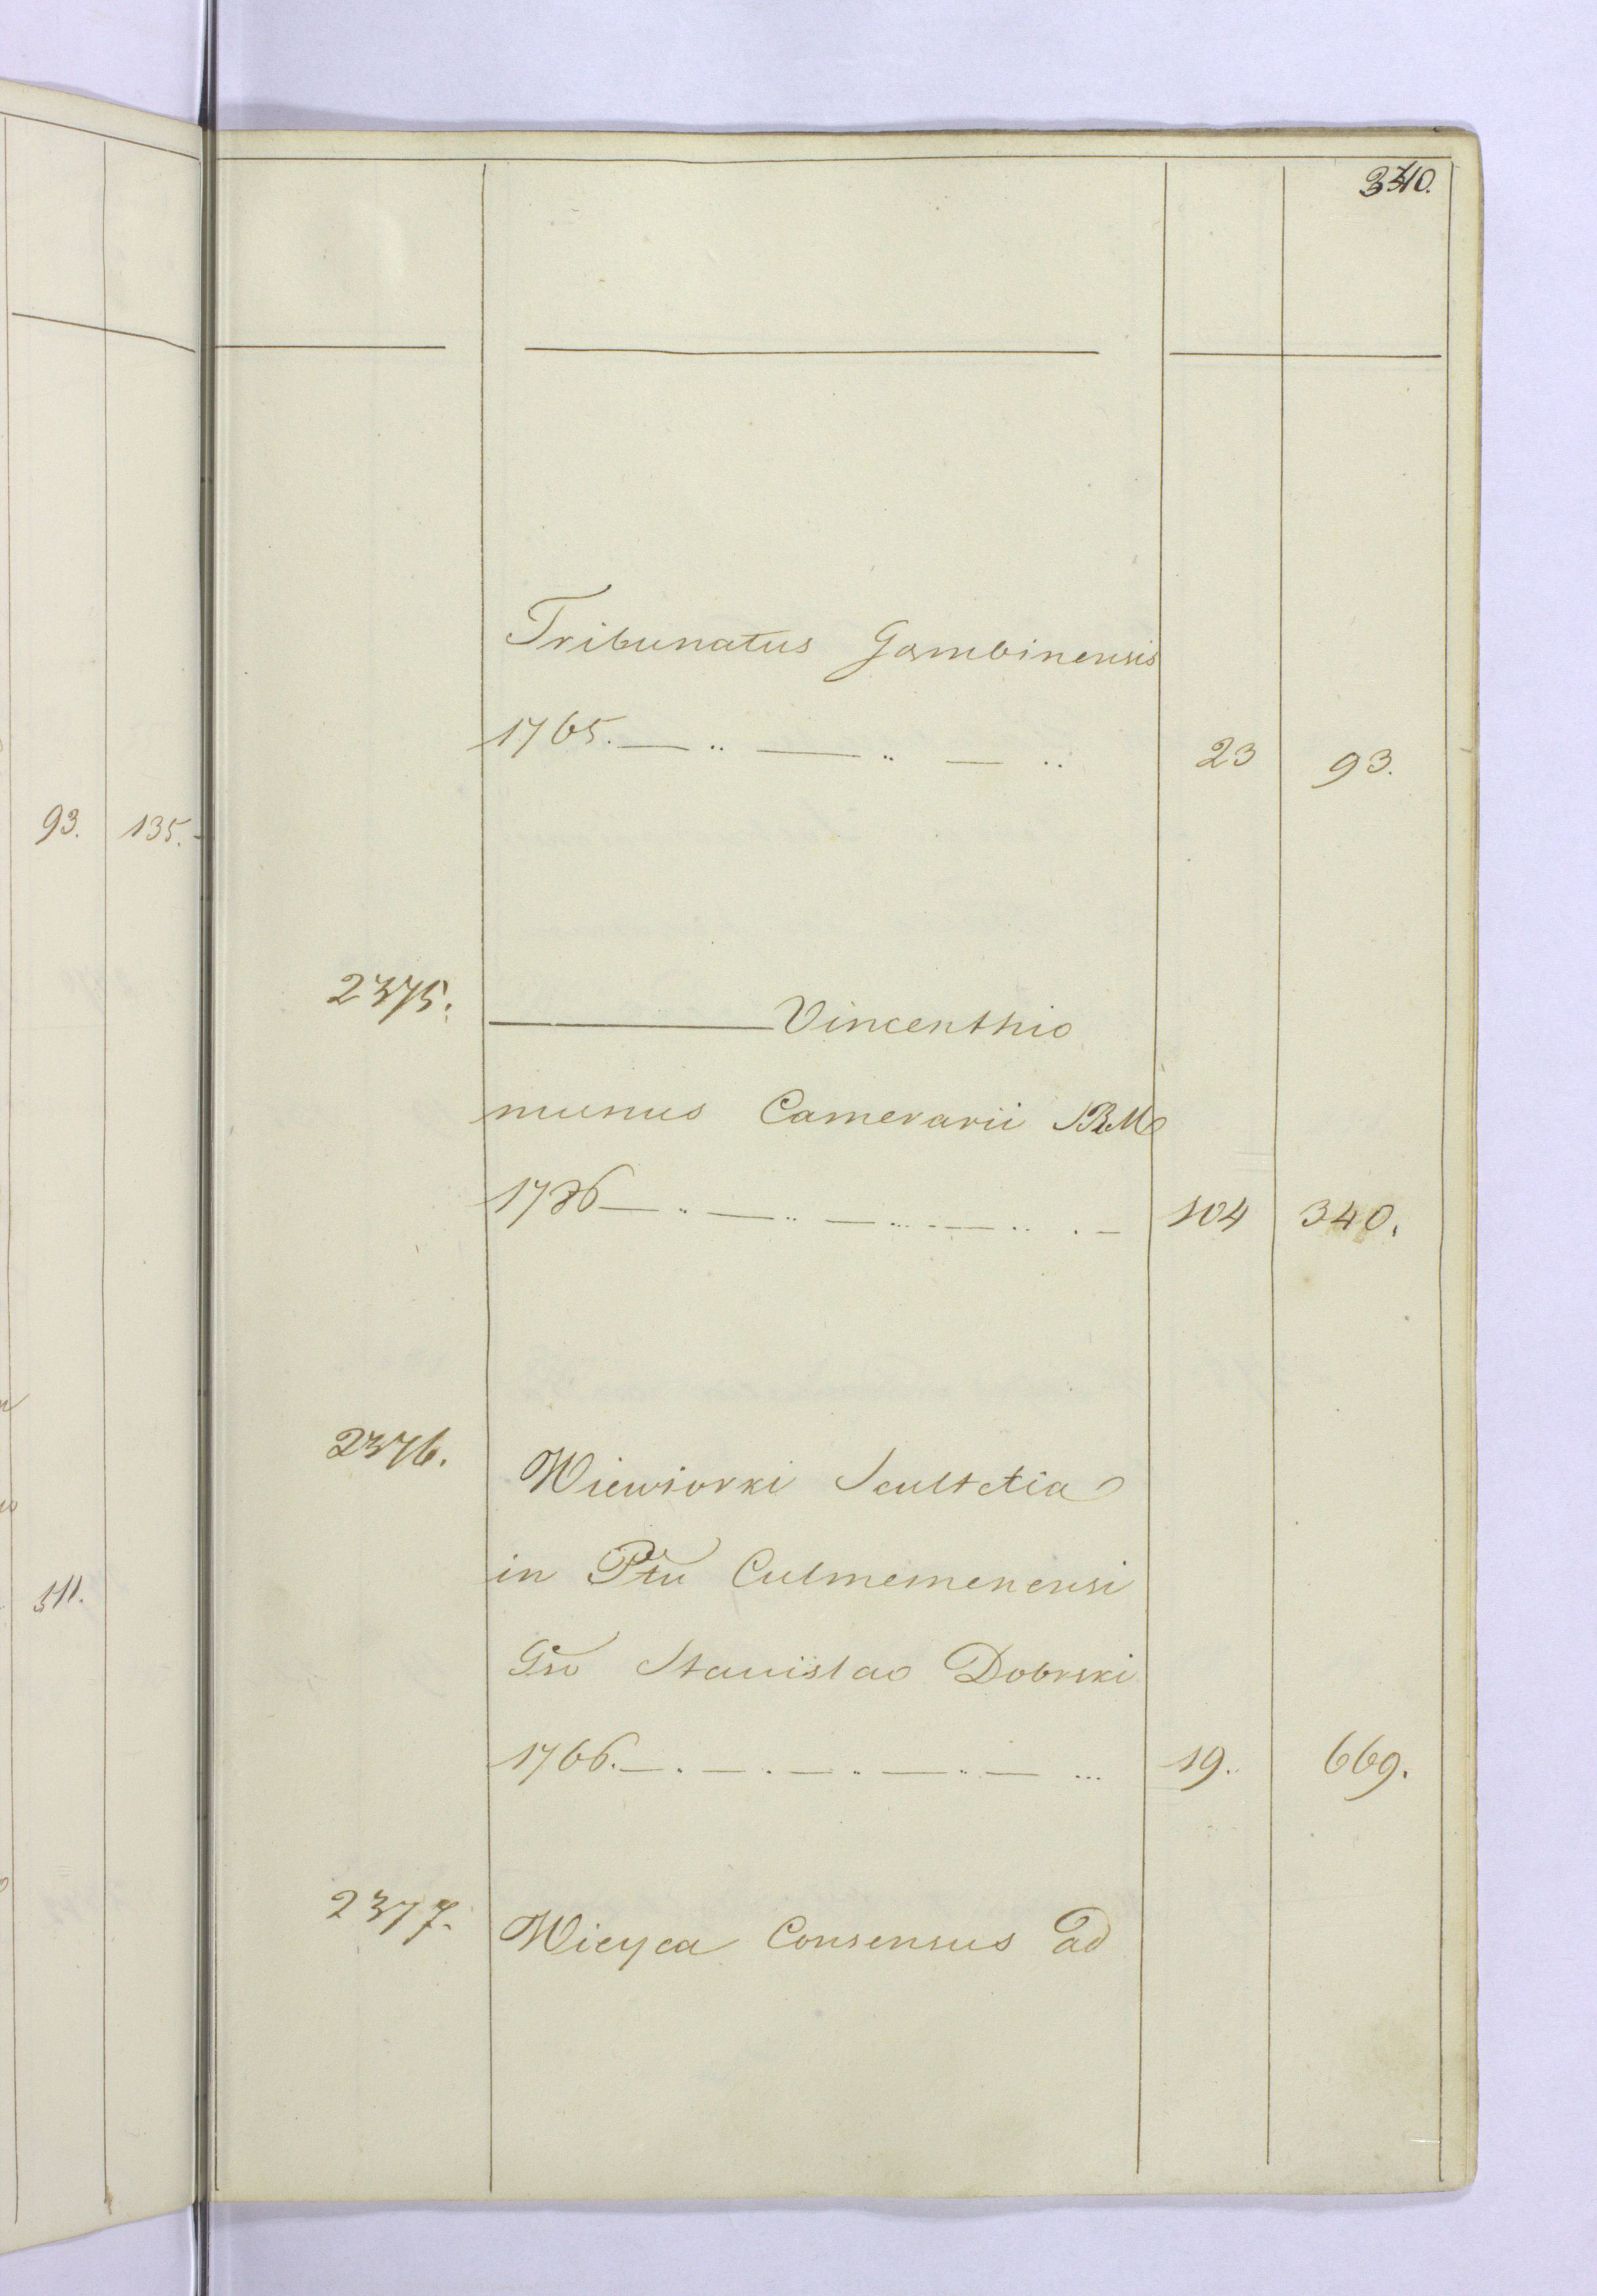 340.
Tribunatus Gambinensis
1765. 23 93.
93. 135.
2375. Vincenthio
munus Camerarii SRM
1786 104 340.
2376. Wiewiorki Scultetia
in Ptu Culmemenensi
511.
Gso Stanislao Dobrski
1766. 19. 669.
2377. Wicyca Consensus ad